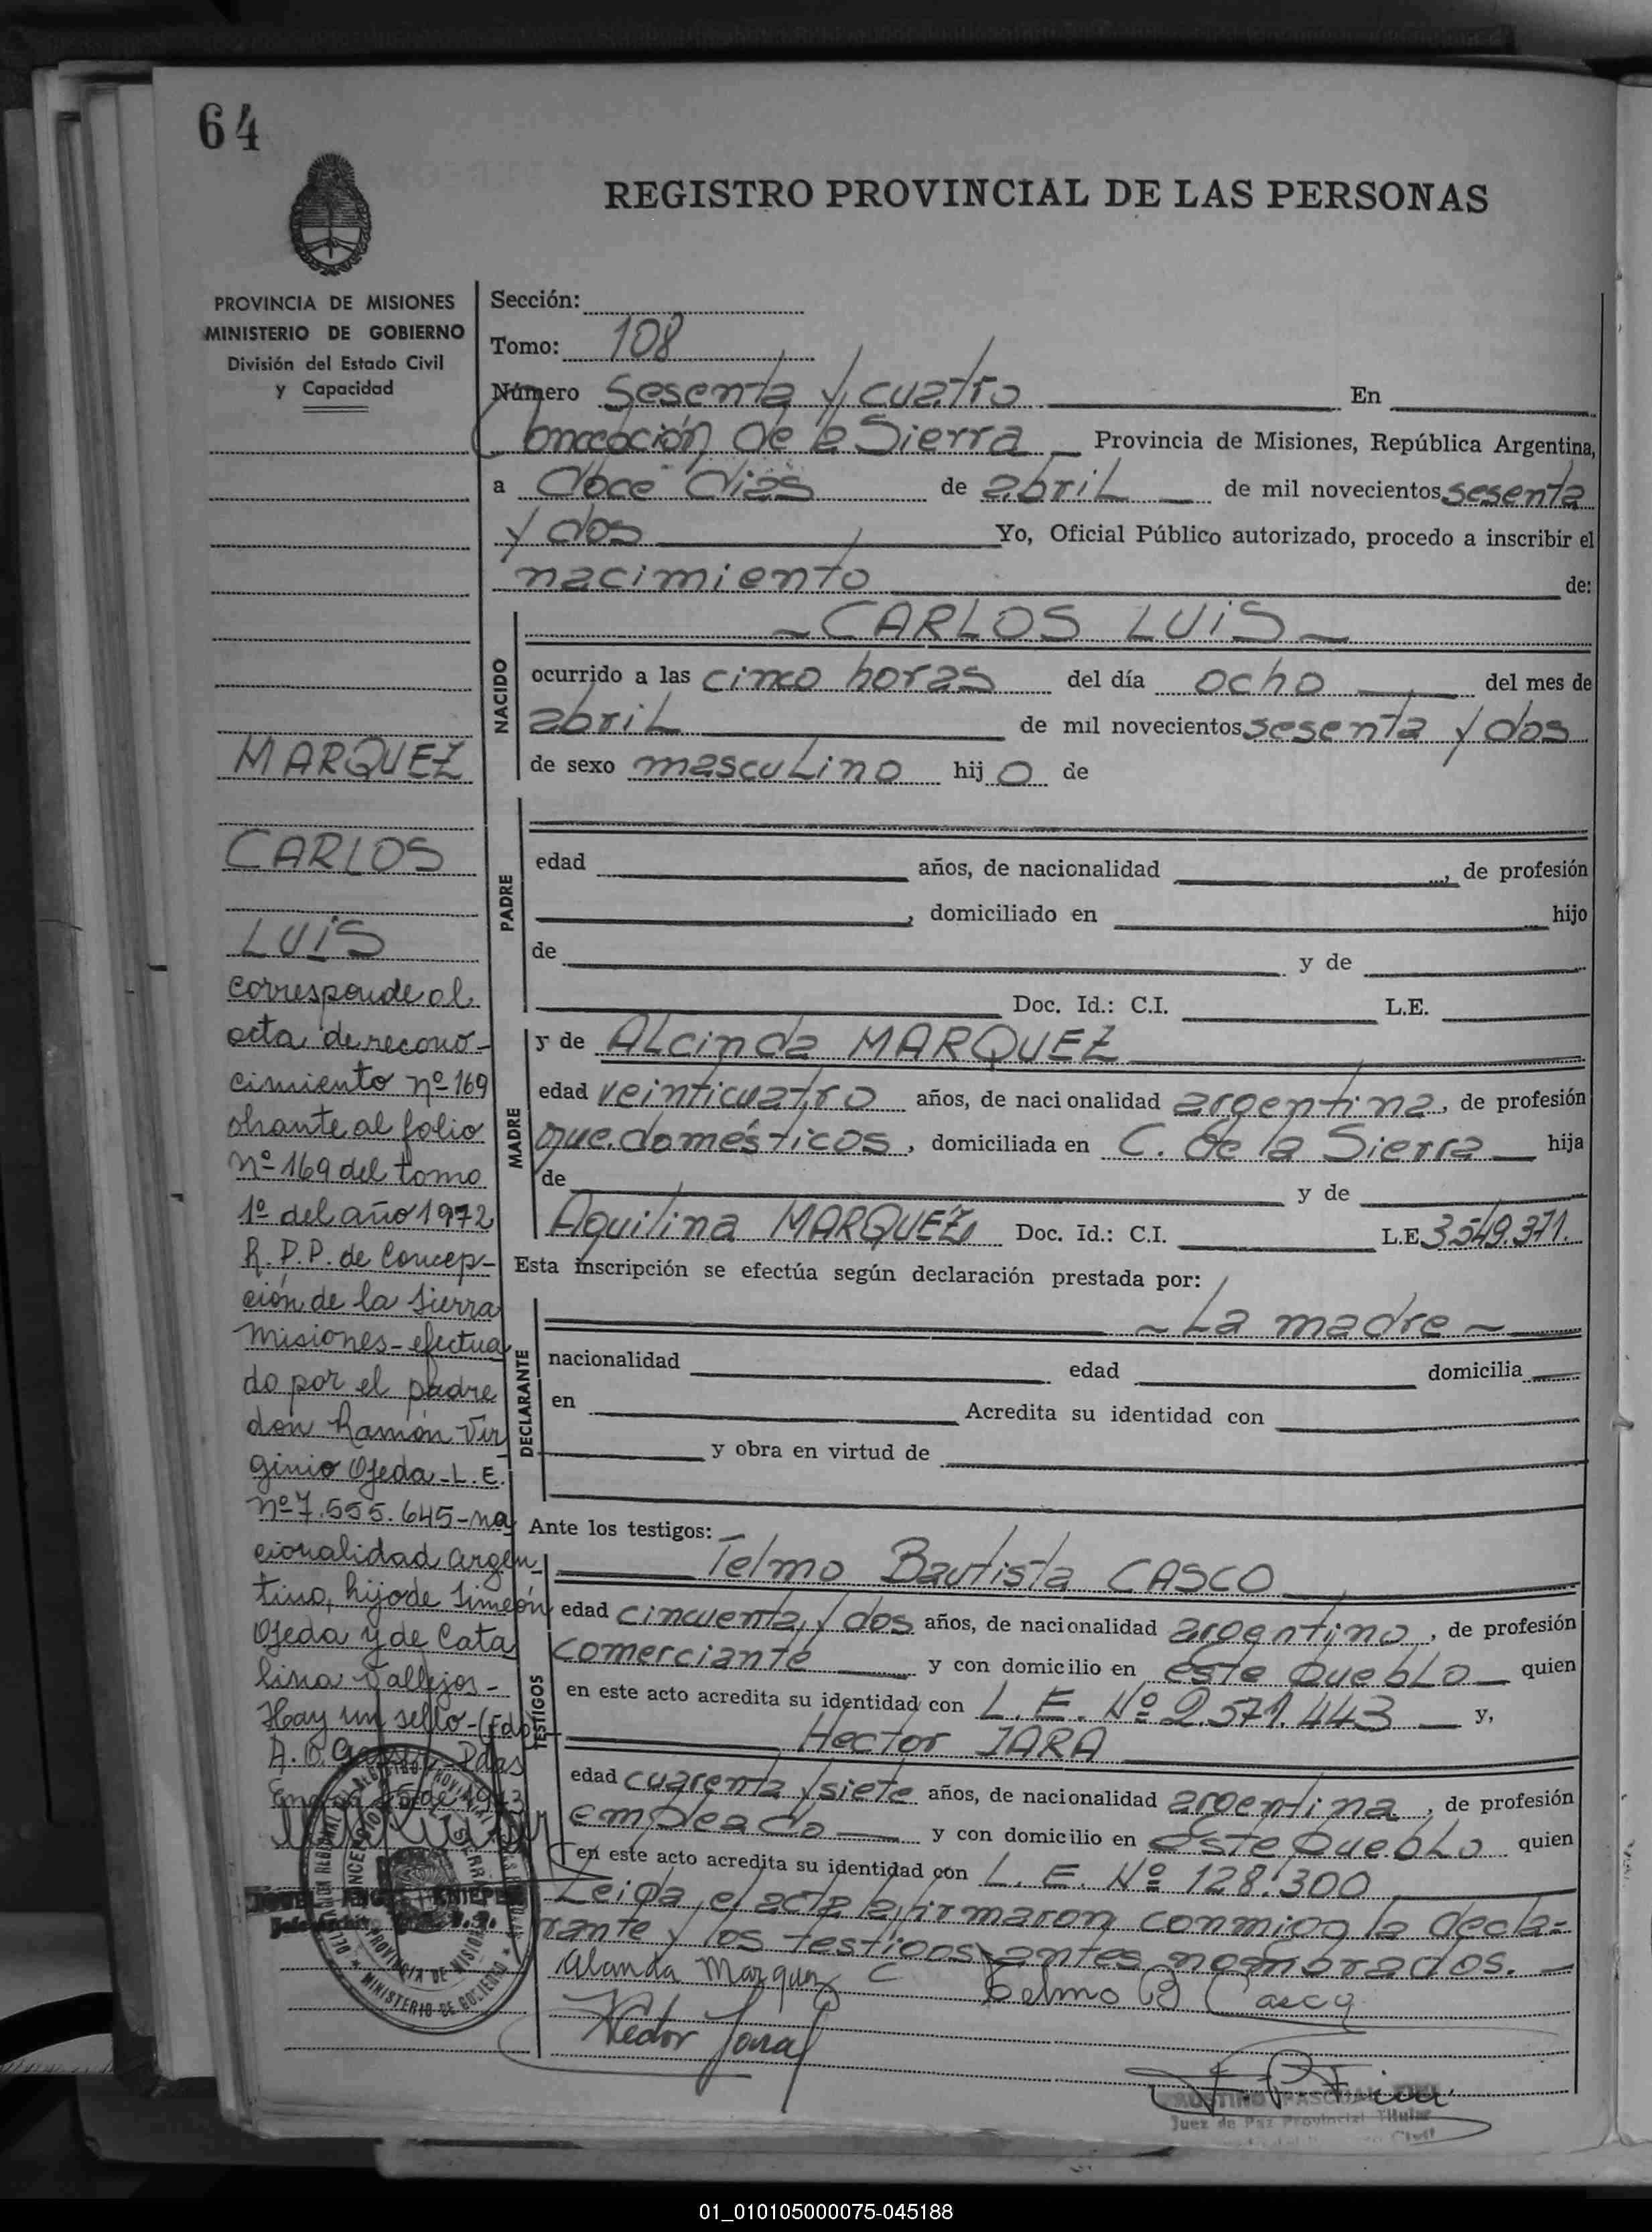 64
REGISTRO PROVINCIAL DE LAS PERSONAS
PROVINCIA DE MISIONES
MINISTERIO DE GOBIERNO
División del Estado Civil
y Capacidad
MARQUEZ
CARLOS
LUIS
corresponde al
acta de recono-
cimiento nº 169
obrante al folio
nº 169 del tomo
1º del año 1972
R.P.P. de Concep-
ción de la Sierra
Misiones - efectua
do por el padre
don Ramón Vir
ginio Ojeda - L.E.
nº 7.555.645 - na
cionalidad argen
tino, hijo de Simeón
Ojeda y de Cata
lina Vallejos -
Hay un sello - (Fdo)
Sección:
Tomo: 108
Número Sesenta y cuatro En
Concepción de la Sierra Provincia de Misiones, República Argentina,
a doce dias de abril de mil novecientos sesenta
y dos Yo, Oficial Público autorizado, procedo a inscribir el
nacimiento de:
NACIDO
- CARLOS LUIS -
ocurrido a las cinco horas del día ocho del mes de
abril de mil novecientos sesenta y dos
de sexo masculino hij o de
PADRE
edad años, de nacionalidad , de profesión
, domiciliado en hijo
de y de
Doc. Id.: C.I. L.E.
MADRE
y de Alcinda MARQUEZ
edad veinticuatro años, de nacionalidad argentina, de profesión
que.domésticos, domiciliada en C. de la Sierra hija
de y de
Aquilina MARQUEZ Doc. Id.: C.I. L.E. 3.549.371.
Esta inscripción se efectúa según declaración prestada por:
DECLARANTE
- La madre -
nacionalidad edad domicilia
en Acredita su identidad con
y obra en virtud de
Ante los testigos:
TESTIGOS
Telmo Bautista CASCO
edad cincuenta y dos años, de nacionalidad argentino, de profesión
comerciante y con domicilio en este pueblo quien
en este acto acredita su identidad con L. E. Nº 2.571.443 y,
Hector JARA
edad cuarenta y siete años, de nacionalidad argentina, de profesión
empleado y con domicilio en este pueblo quien
en este acto acredita su identidad con L. E. Nº 128.300
Leida el acta la firmaron conmigo la decla=
rante y los testigos antes nombrados.
Marquez Telmo B Casco
Hector Jara
Juez de Paz Provincial Titular
MINISTERIO DE GOBIERNO
PROVINCIA DE MISIONES
01_010105000075-045188